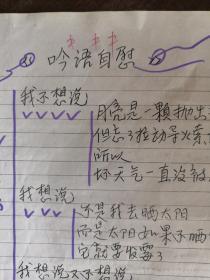 吟语自慰
我不想说
月亮是一颗抛出
但忘了拉动导火索
所以
坏天气一直没被
我想说
不是我去晒太阳
而是太阳如果不晒
它就要发霉了
我想说又不想说